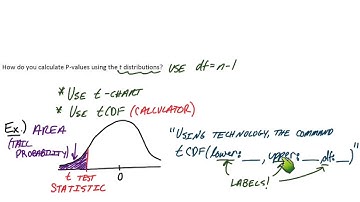 How do you calculate P-values using the t distributions? USE df=n-1
* USE t-CHART
* USE tCDF (CALCULATOR)
Ex.) AREA
(TAIL
PROBABILITY)
t TEST
STATISTIC
0
"USING TECHNOLOGY, THE COMMAND
tCDF(lower: __, upper: __ df: __)"
LABELS!